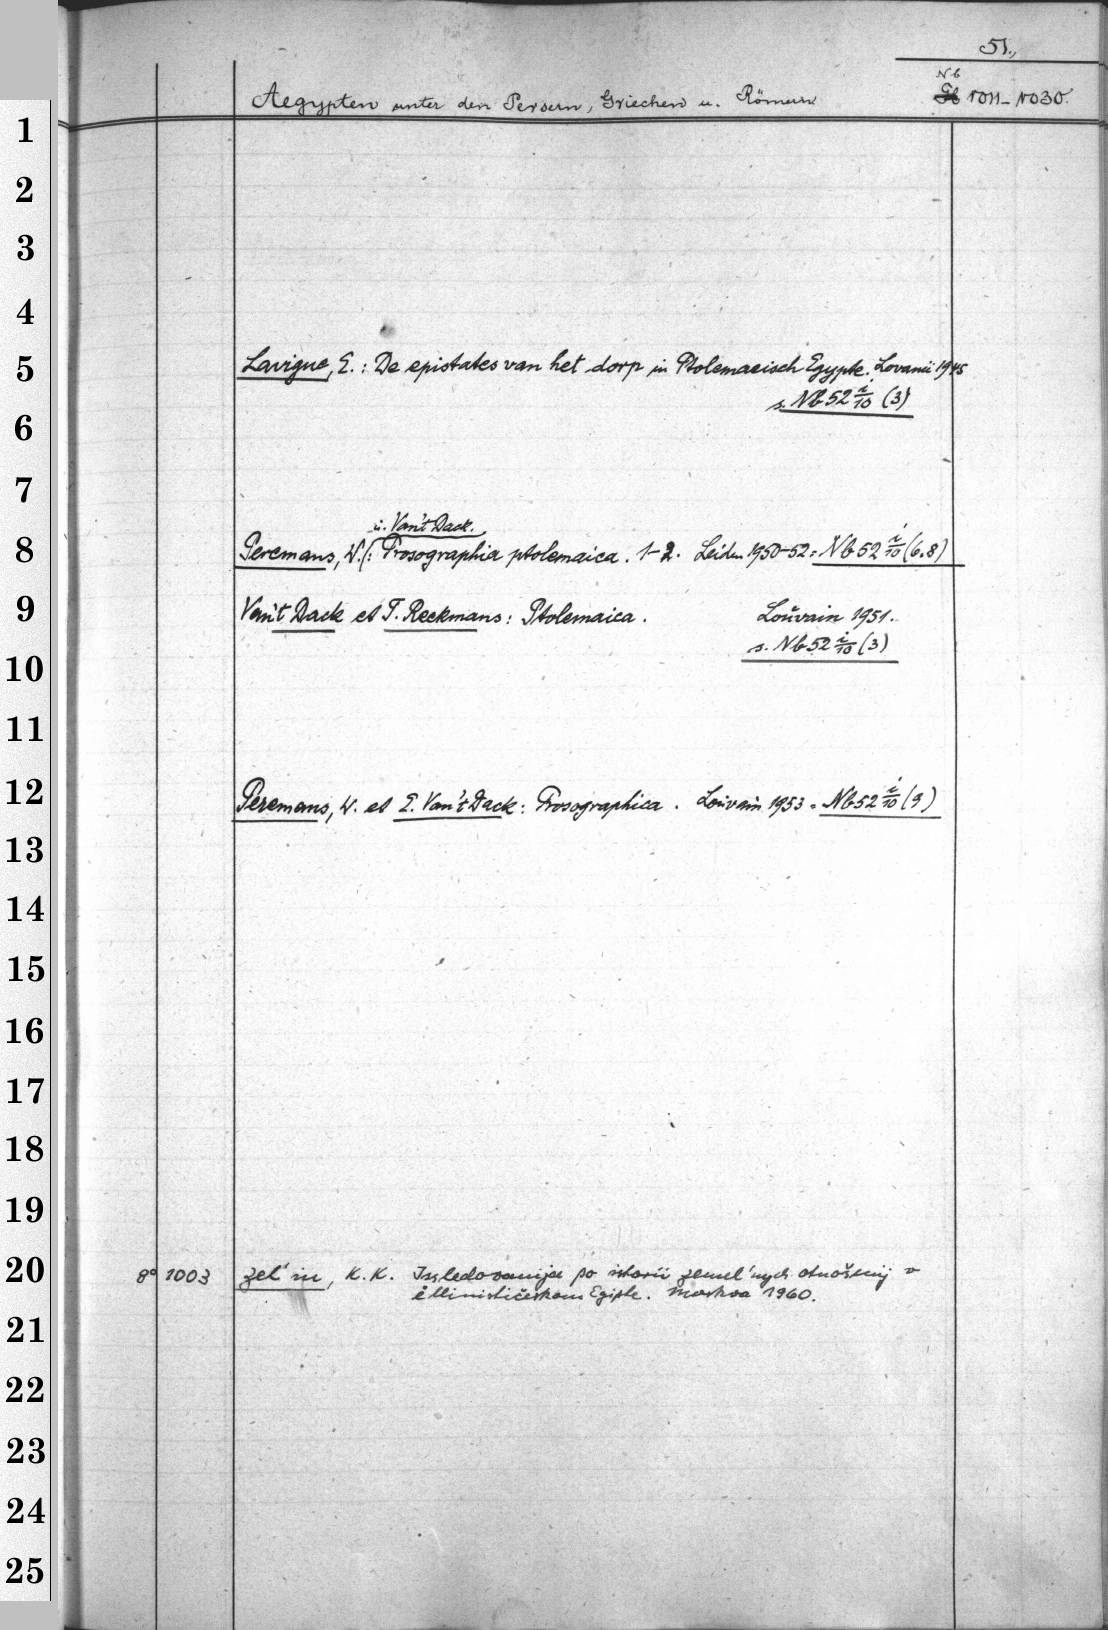 51.,
Nb
Aegypten unter den Persern, Griechen u. Römern 1011-1030.
1
2
3
4
5 Lavigne, E.: De epistates van het dorp in Ptolemaeisch Egypte. Lovanii 1945
s. Nb 52 i/10 (3)
6
7
u. Van't Dack.
8 Peremans, W.: Prosographia ptolemaica. 1-2. Leiden 1950-52 = Nb 52 i/10 (6.8)
9 Van't Dack et T. Reekmans: Ptolemaica. Louvain 1951.
s. Nb 52 i/10 (3)
10
11
12 Peremans, W. et E. Van't Dack: Prosographica. Louvain 1953 = Nb 52 i/10 (9)
13
14
15
16
17
18
19
20 8° 1003 Zel'in, K.K. Issledovanija po istorii zemel'nych otnošenij v
ėllinističeskom Egipte. Moskva 1960.
21
22
23
24
25